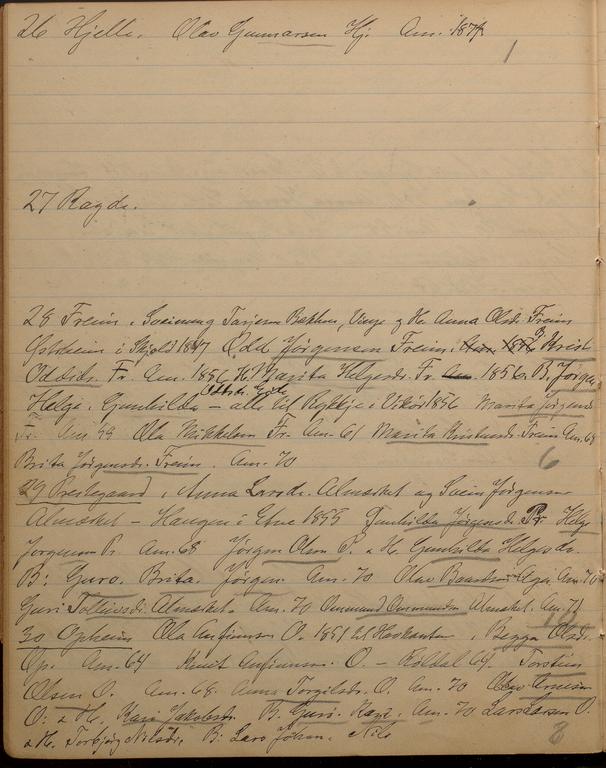 26 Hjelle. Olav Gunnarsen Hj. Am. 1874
1
27 Ragde.
28 Freim. Sveinung Tarjesen Bakken, Vinje og H. Anna Olsd. Freim
i Skjold 1847 Odd Jørgensen Freim. B. Brit
Oddsd. Fr. Am. 1856 H. Marita Helgesd. Fr. Am. 1856. B. Jørgen,
Helge, Gunhilda — alle til i Vikør 1856 Marita Jørgensd.
Fr. Am 59 Ola Mikkelsen Fr. Am. 61 Marita Knutsd. Freim Am. 69
Brita Jørgensd. Freim. Am. 70
6
29 Prestegaard, Anna Larsd. Almerket og Svein Jørgensen
Almerket — Haugen i Etne 1855 Gunhilda Jørgensd. Pr. Helge
Jørgensen Pr. Am. 68 Jørgen Olsen P. & H. Gunhilda Helgesd.
B: Guro. Brita. Jørgen Am. 70 Olav Am. 70
Guri Tolleivsd. Almerket. Am. 70 Osmund Osmundsen Almerket. Am. 71
30 Opheim Ola Anfinnsen O. 1851 til, Begga Olsd.
Op. Am. 64 Knut Anfinnsen O. — Röldal 64. Torstein
Olsen O. Am. 68. Anna Torgilsd. O. Am. 70 Olav
O: & H. Kari Jakobsd. B. Guri. Kari. Am. 70 Lars Larsen O.
& H. Torbjørg Nilsd. B: Lars Johan. Nils
8